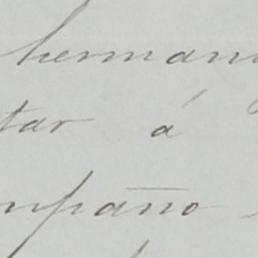 herman
tar á
mpaño